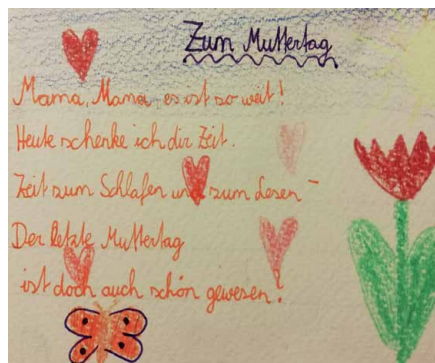 Zum Muttertag
Mama, Mama, es ist so weit!
Heute schenke ich dir Zeit.
Zeit zum Schlafen und zum Lesen –
Der letzte Muttertag
ist doch auch schön gewesen!